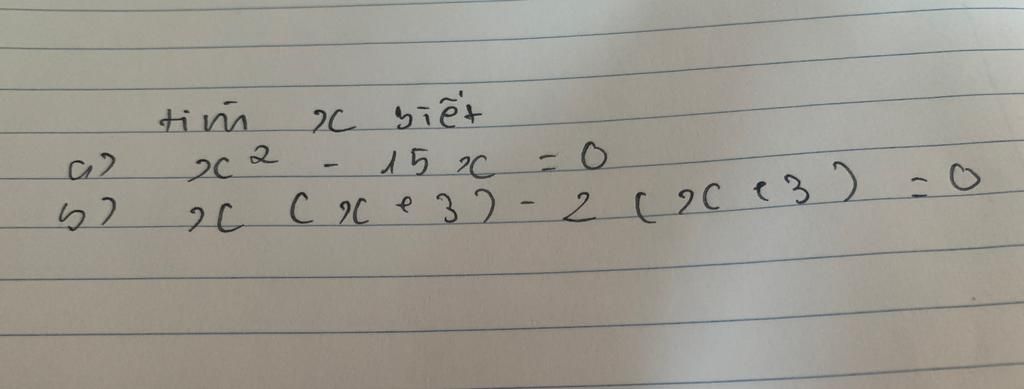 tìm x biết
a) x² - 15x = 0
b) x (x + 3) - 2 (x + 3) = 0